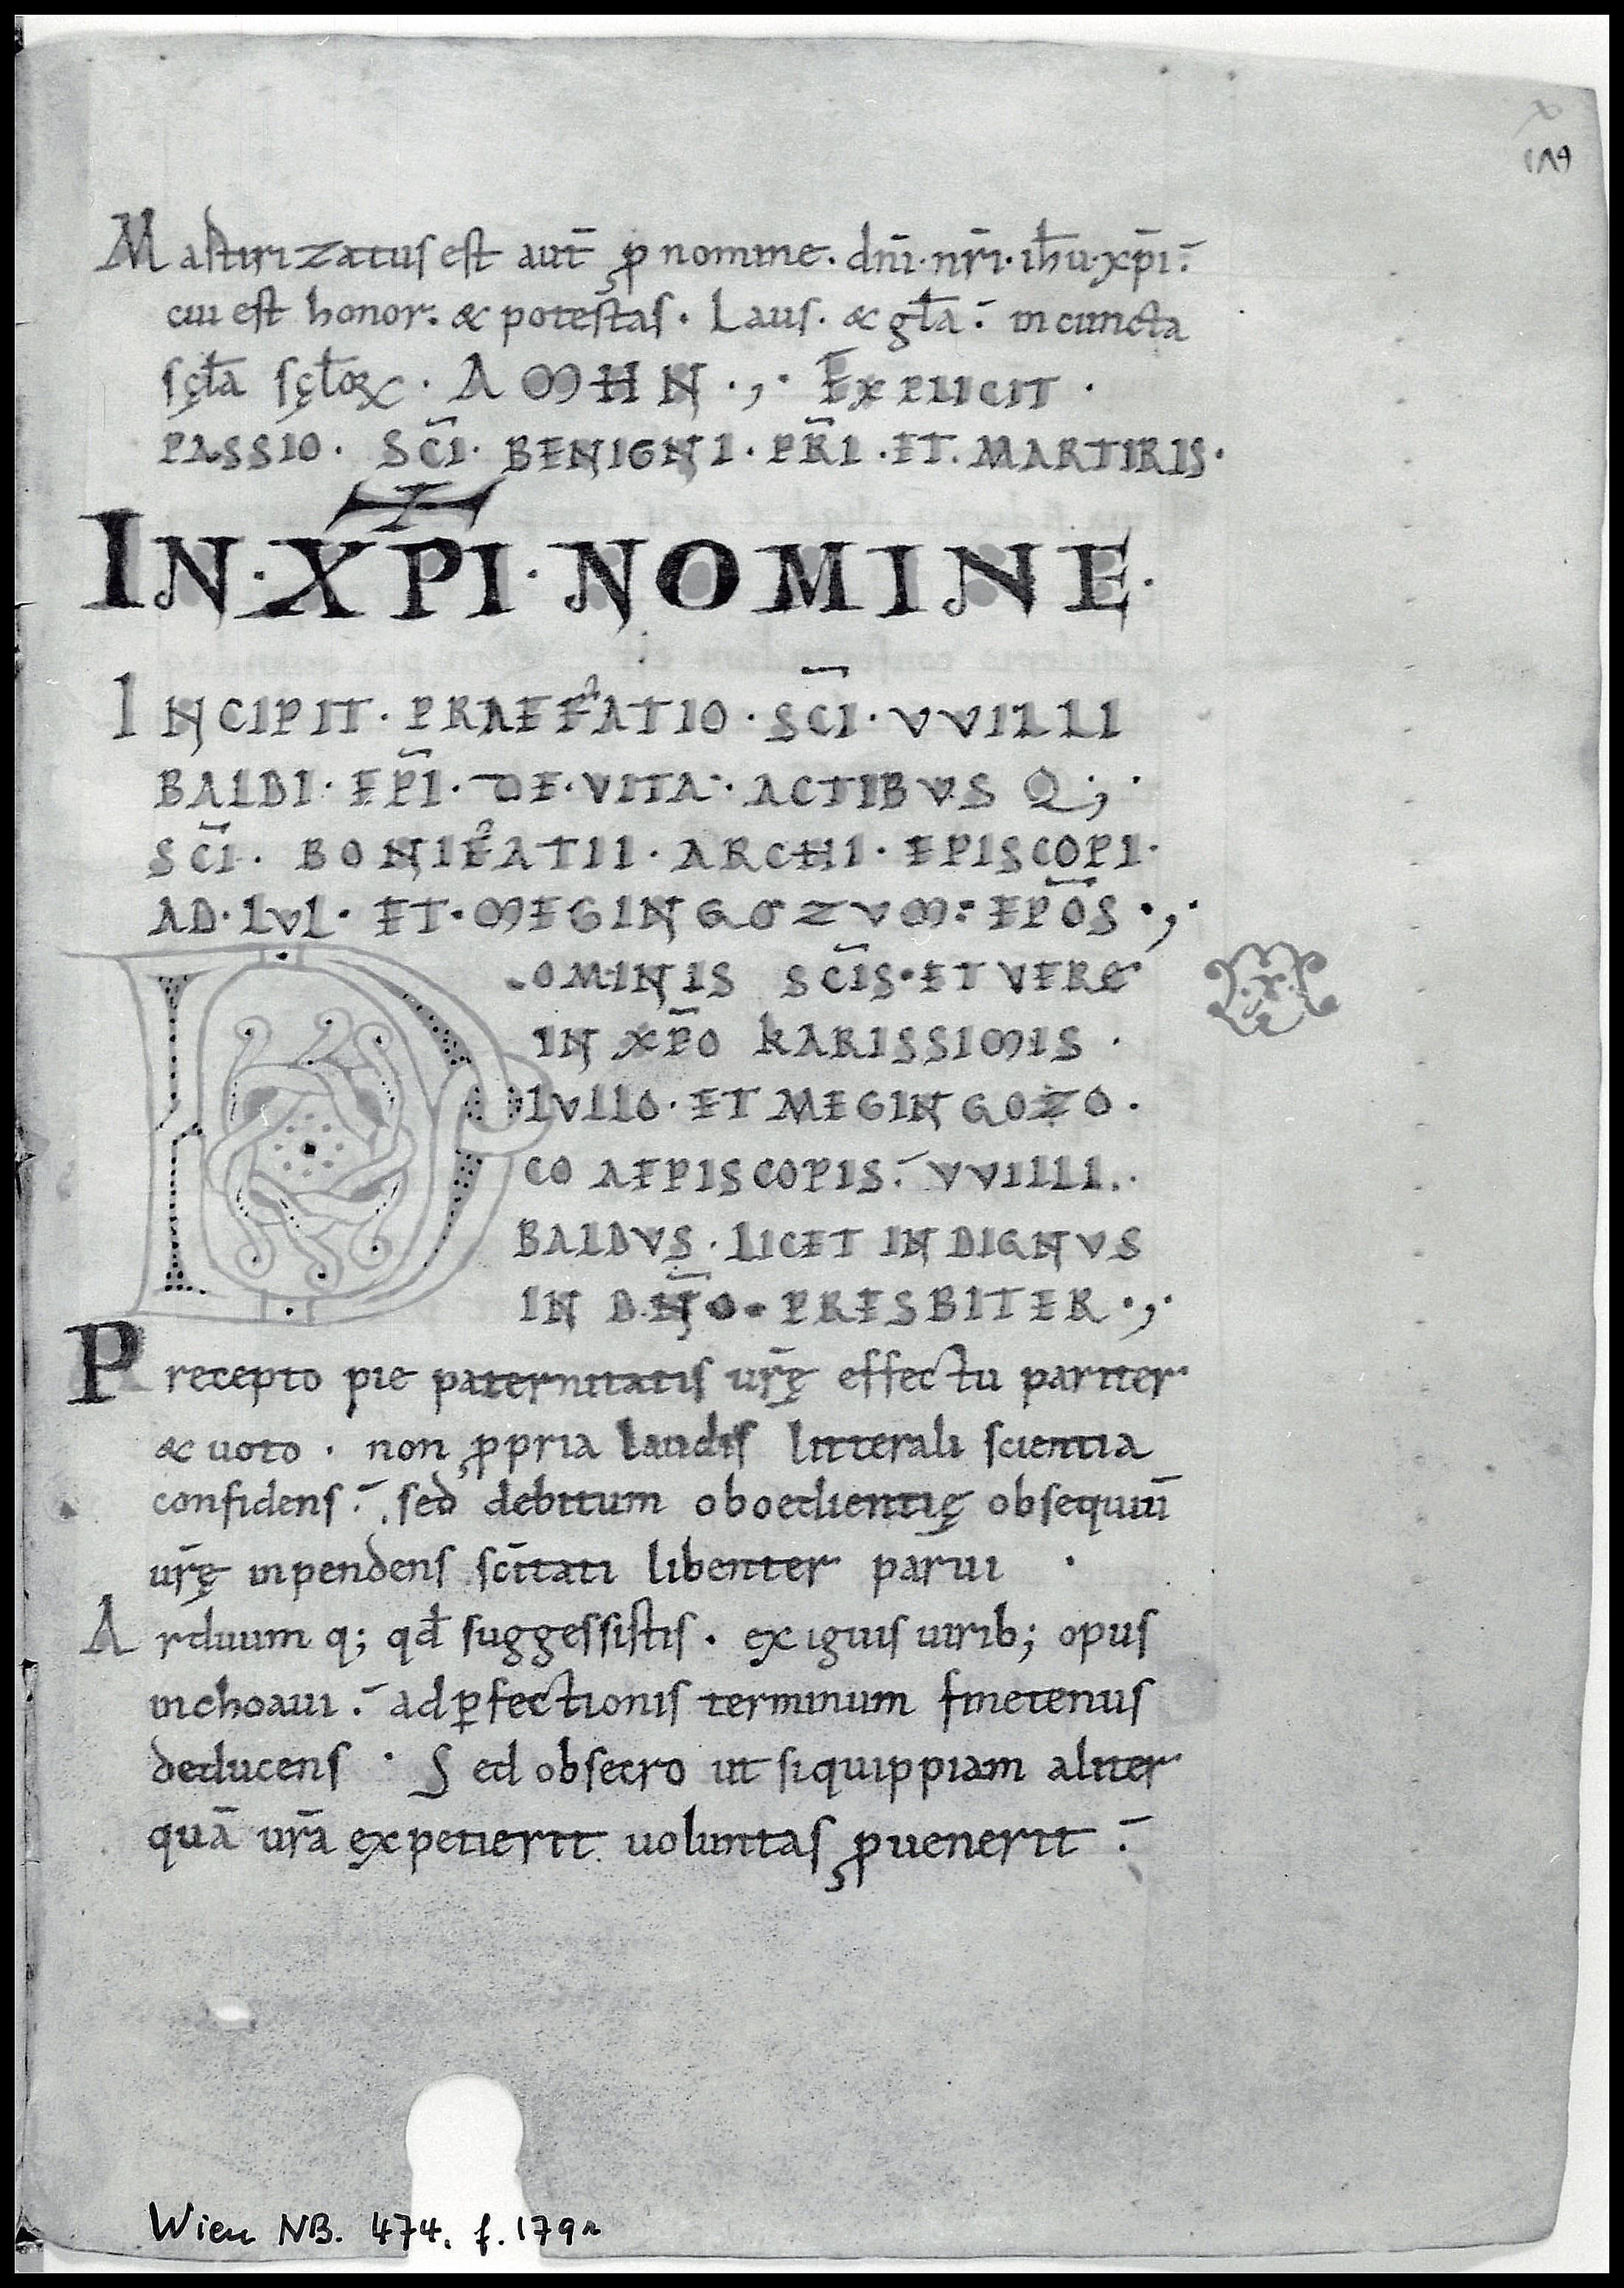 Mastirizatus est aut̄ ꝓ nomine. dn̄i·nr̄i·ih̄u·xp̄i:
cui est honor. & potestas. Laus. & gl̄a: in cuncta
sęl̄a sęl̄oꝝ. AMHN., EXPLICIT.
PASSIO. SC̄I. BENIGNI. PR̄I. ET. MARTIRIS.
IN·XP̄I·NOMINE·
INCIPIT·PRAEFATIO·SC̄I·VVILLI
BALDI·EP̄I·DE·VITA·ACTIBVS Q;
SC̄I·BONIFATII·ARCHI·EPISCOPI·
AD·LVL·ET·MEGINGOZVM: EP̄OS.,
DOMINIS SC̄IS·ET VERE
IN XP̄O KARISSIMIS.
LVLLO·ET MEGINGOZO.
CO AEPISCOPIS: VVILLI.
BALDVS·LICET INDIGNVS
IN DN̄O. PRESBITER.,
Precepto pie paternitatis ur̄ę effectu pariter
& uoto. non ꝓpria laudis litterali scientia
confidens: sed debitum oboedientię obsequiū
ur̄ę inpendens sc̄itati libenter parui ·
Arduum q; qd̄ suggessistis. exiguis uirib; opus
inchoaui: ad ꝑfectionis terminum finetenus
deducens · Sed obsecro ut si quippiam aliter
quā ur̄a expetierit uoluntas ꝓuenerit:
Wien NB. 474. f. 179r